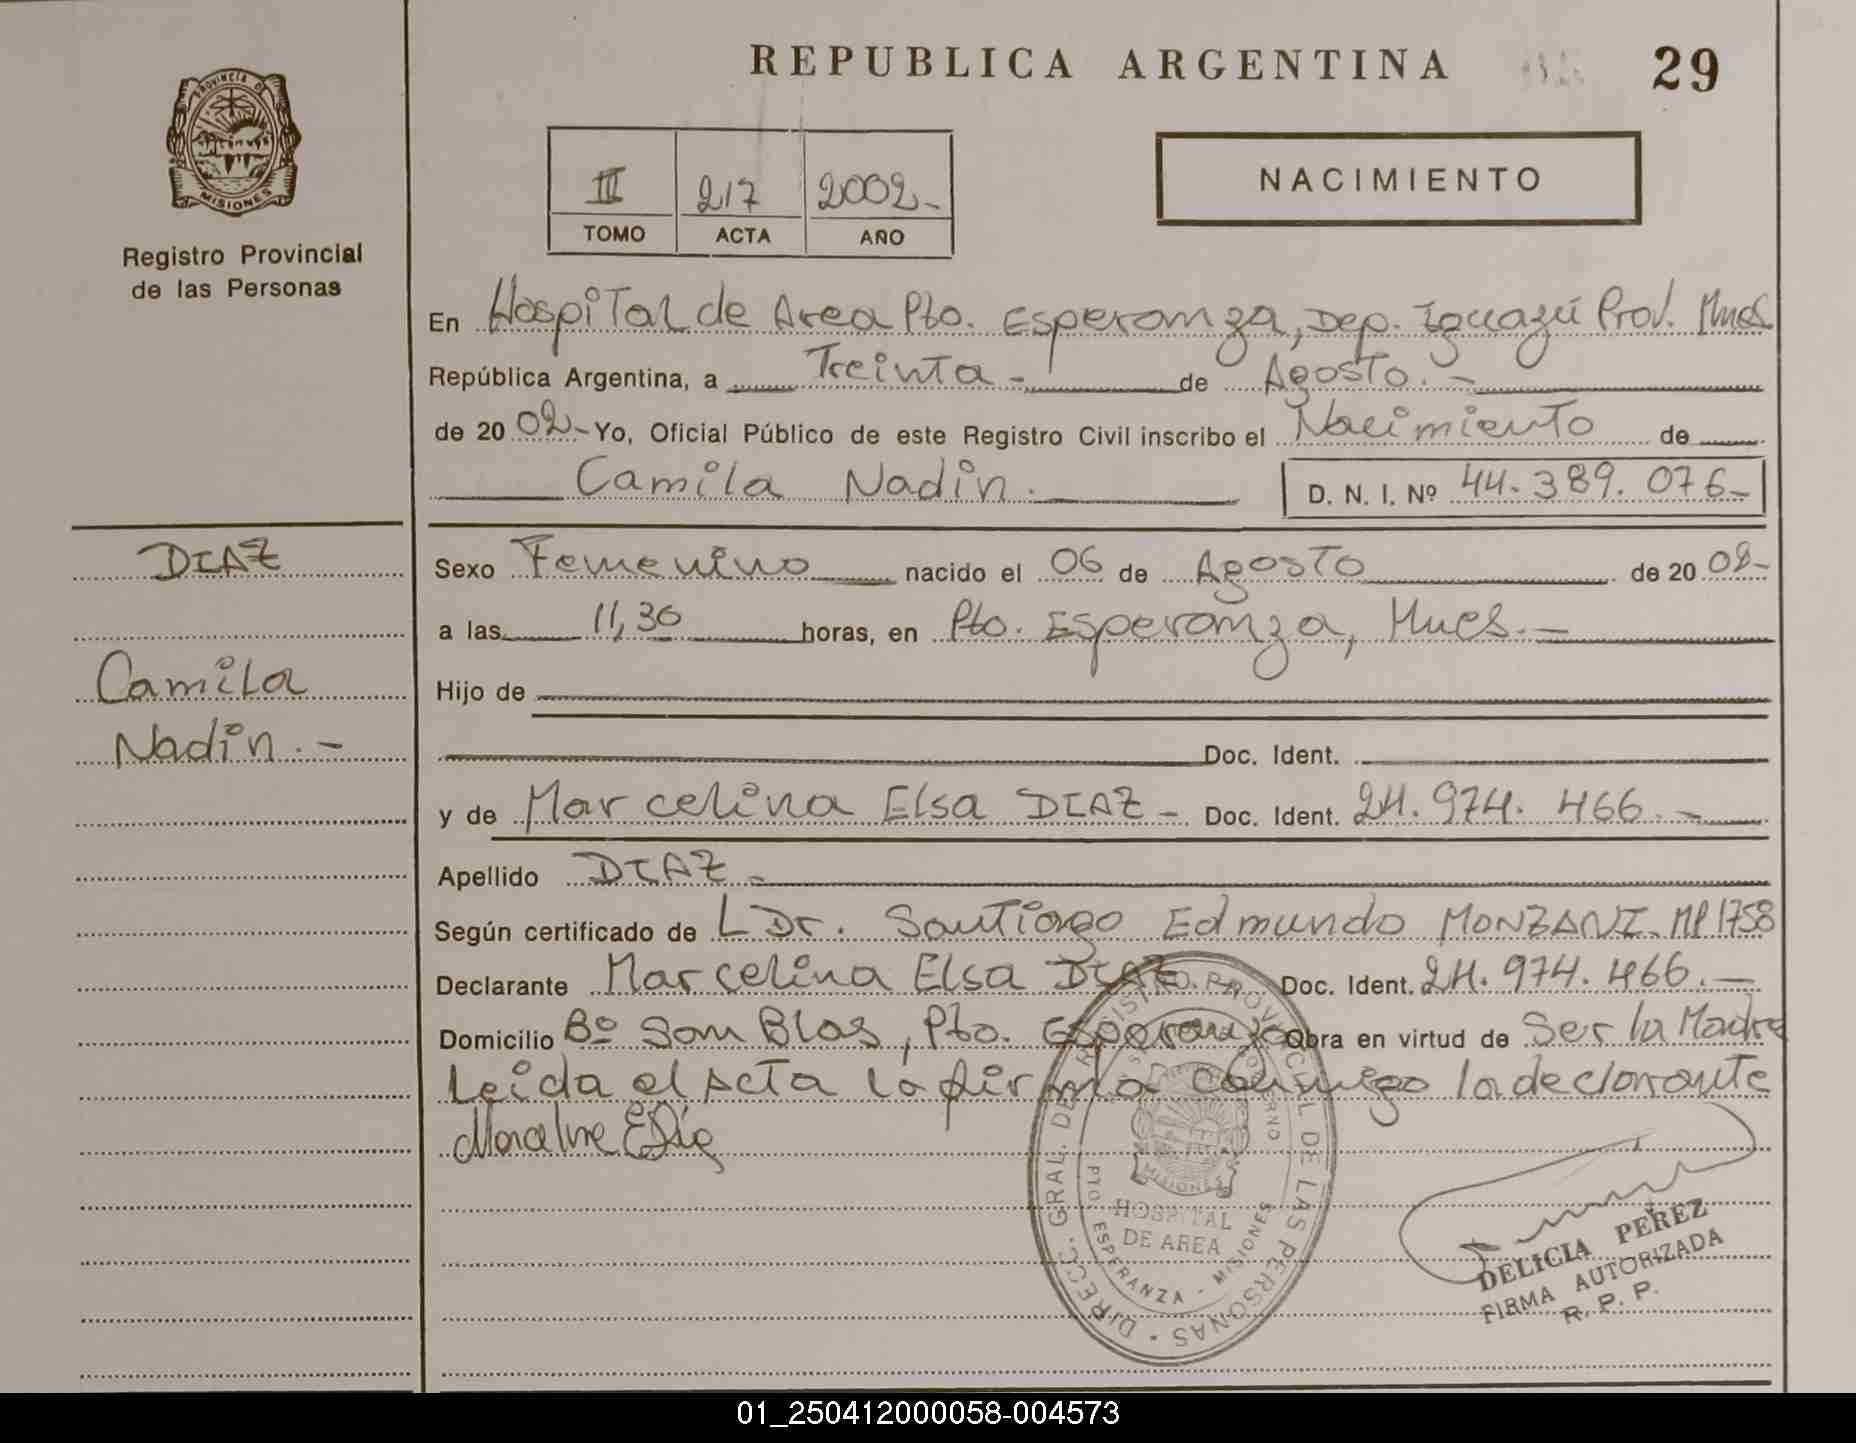 REPUBLICA ARGENTINA
29
PROVINCIA DE
MISIONES
Registro Provincial
de las Personas
III 217 2002-
TOMO ACTA AÑO
NACIMIENTO
En Hospital de Area Pto. Esperanza, Dep. Iguazú Prov. Mnes
República Argentina, a Treinta - de Agosto. -
de 20 02- Yo, Oficial Público de este Registro Civil inscribo el Nacimiento de
Camila Nadin.
D. N. I. Nº 44.389.076-
DIAZ
Camila
Nadin. -
Sexo Femenino nacido el 06 de Agosto de 20 02-
a las 11,30 horas, en Pto. Esperanza, Mnes. -
Hijo de
Doc. Ident.
y de Marcelina Elsa DIAZ - Doc. Ident. 24.974.466. -
Apellido DIAZ -
Según certificado de Dr. Santiago Edmundo MONZANI. MP 1758
Declarante Marcelina Elsa DIAZ Doc. Ident. 24.974.466. -
Domicilio Bº San Blas, Pto. Esperanza Obra en virtud de Ser la Madre
Leida el Acta la firma conmigo la declarante
DIRECC. GRAL. DEL REGISTRO PROVINCIAL DE LAS PERSONAS
MISIONES
HOSPITAL
DE AREA
PTO. ESPERANZA - MISIONES
DELICIA PEREZ
FIRMA AUTORIZADA
R. P. P.
01_250412000058-004573